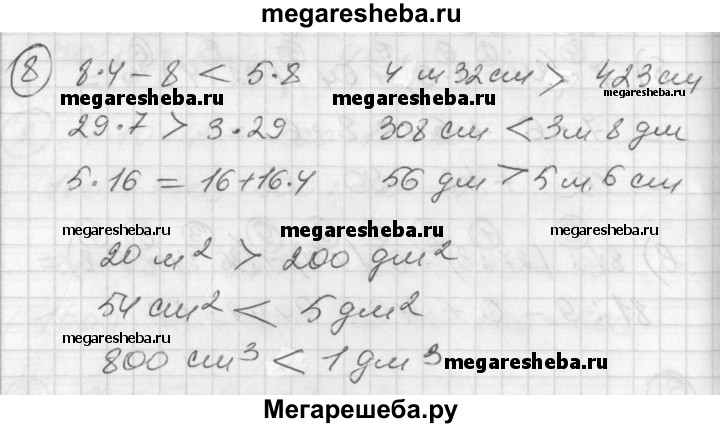 megaresheba.ru
8 8·4-8 < 5·8 4 м 32 см > 423 см
megaresheba.ru megaresheba.ru megaresheba.ru
29·7 > 3·29 308 см < 3 м 8 дм
5·16 = 16+16·4 56 дм > 5 м. 6 см
megaresheba.ru megaresheba.ru megaresheba.ru
20 м² > 200 дм²
54 см² < 5 дм²
megaresheba.ru
800 см³ < 1 дм³ megaresheba.ru
Мегарешеба.ру